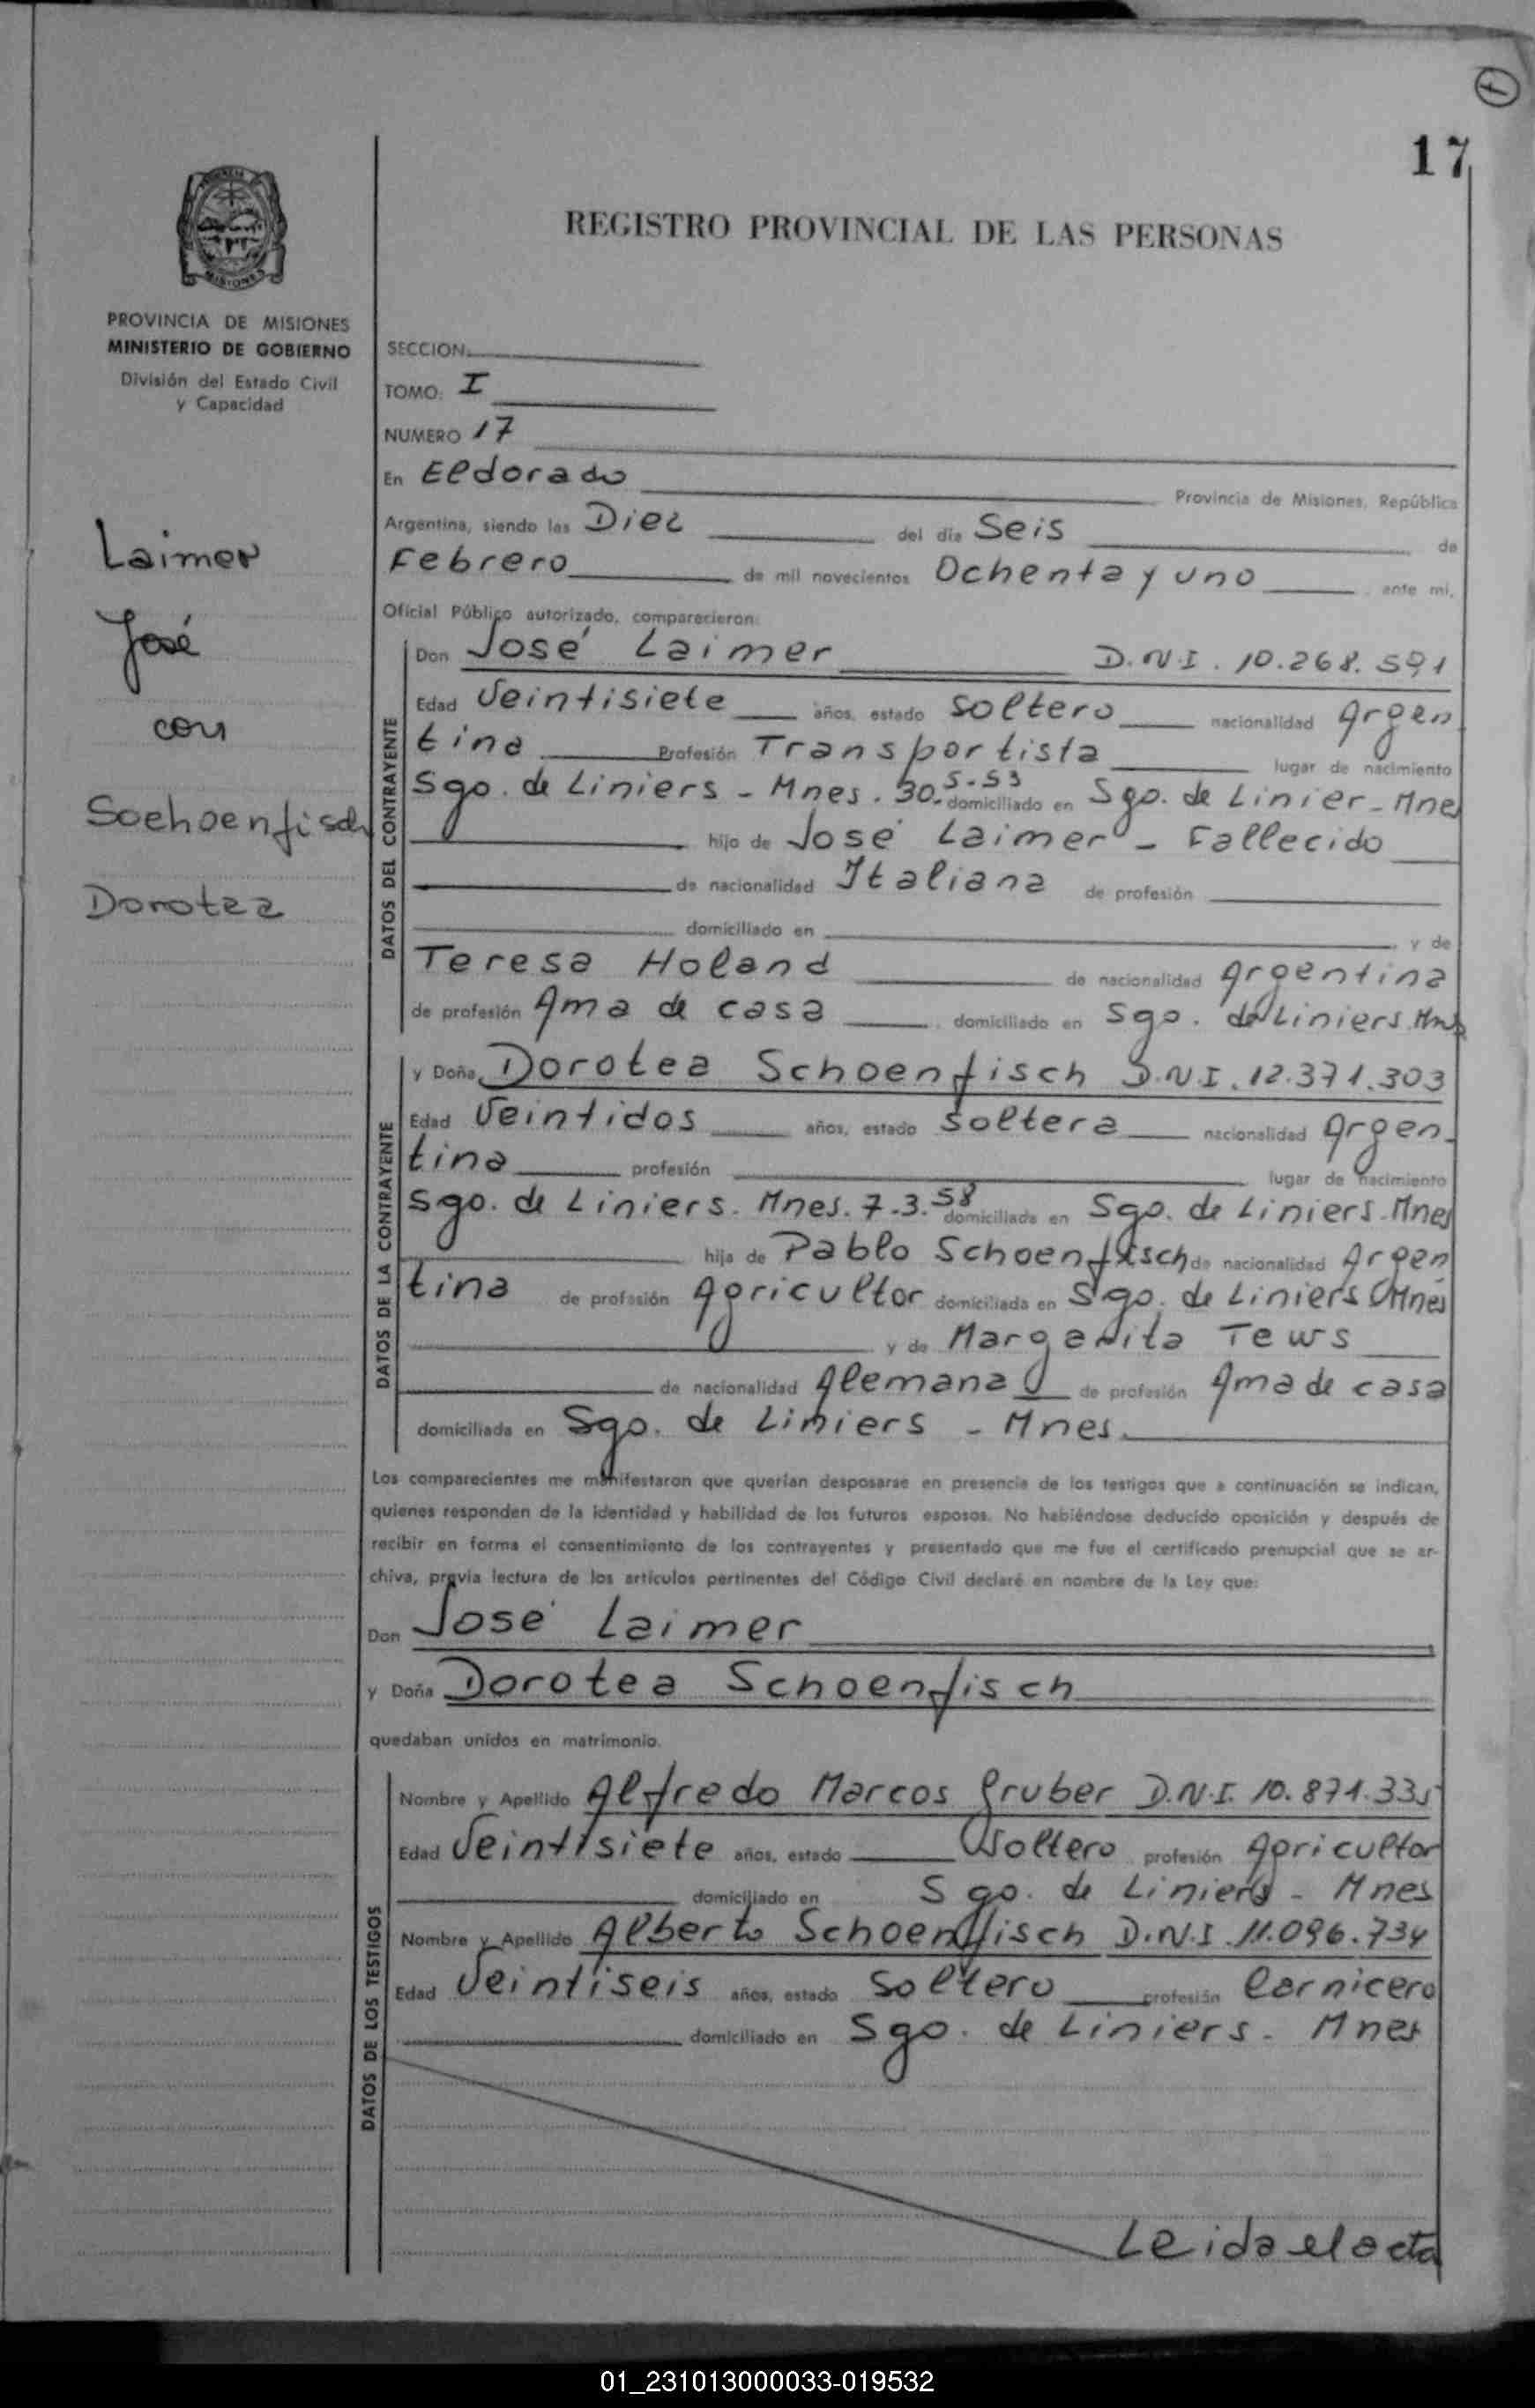 17
REGISTRO PROVINCIAL DE LAS PERSONAS
PROVINCIA DE MISIONES
MINISTERIO DE GOBIERNO
División del Estado Civil
y Capacidad
Laimer
José
con
Schoenfisch
Dorotea
SECCION:
TOMO: I
NUMERO 17
En Eldorado Provincia de Misiones, República
Argentina, siendo las Diez del día Seis de
Febrero de mil novecientos Ochenta y uno ante mi,
Oficial Público autorizado, comparecieron:
DATOS DEL CONTRAYENTE
Don José Laimer D.N.I. 10.268.591
Edad Veintisiete años, estado soltero nacionalidad Argen
tina Profesión Transportista lugar de nacimiento
Sgo. de Liniers - Mnes. 30-5-53 domiciliado en Sgo. de Linier - Mnes
hijo de José Laimer - Fallecido
de nacionalidad Italiana de profesión
domiciliado en y de
Teresa Holand de nacionalidad Argentina
de profesión Ama de casa domiciliado en Sgo. de Liniers Mns
DATOS DE LA CONTRAYENTE
y Doña Dorotea Schoenfisch D.N.I. 12.371.303
Edad Veintidos años, estado soltera nacionalidad Argen-
tina profesión lugar de nacimiento
Sgo. de Liniers. Mnes. 7-3-58 domiciliada en Sgo. de Liniers. Mnes
hija de Pablo Schoenfisch de nacionalidad Argen
tina de profesión Agricultor domiciliada en Sgo. de Liniers Mnes
y de Margarita Tews
de nacionalidad Alemana de profesión Ama de casa
domiciliada en Sgo. de Liniers - Mnes.
Los comparecientes me manifestaron que querían desposarse en presencia de los testigos que a continuación se indican,
quienes responden de la identidad y habilidad de los futuros esposos. No habiéndose deducido oposición y después de
recibir en forma el consentimiento de los contrayentes y presentado que me fue el certificado prenupcial que se ar-
chiva, previa lectura de los artículos pertinentes del Código Civil declaré en nombre de la Ley que:
Don José Laimer
y Doña Dorotea Schoenfisch
quedaban unidos en matrimonio.
DATOS DE LOS TESTIGOS
Nombre y Apellido Alfredo Marcos Gruber D.N.I. 10.871.335
Edad Veintisiete años, estado Soltero profesión Agricultor
domiciliado en Sgo. de Liniers - Mnes
Nombre y Apellido Alberto Schoenfisch D.N.I. 11.096.734
Edad Veintiseis años, estado soltero profesión Carnicero
domiciliado en Sgo. de Liniers - Mnes
Leida el acta
01_231013000033-019532